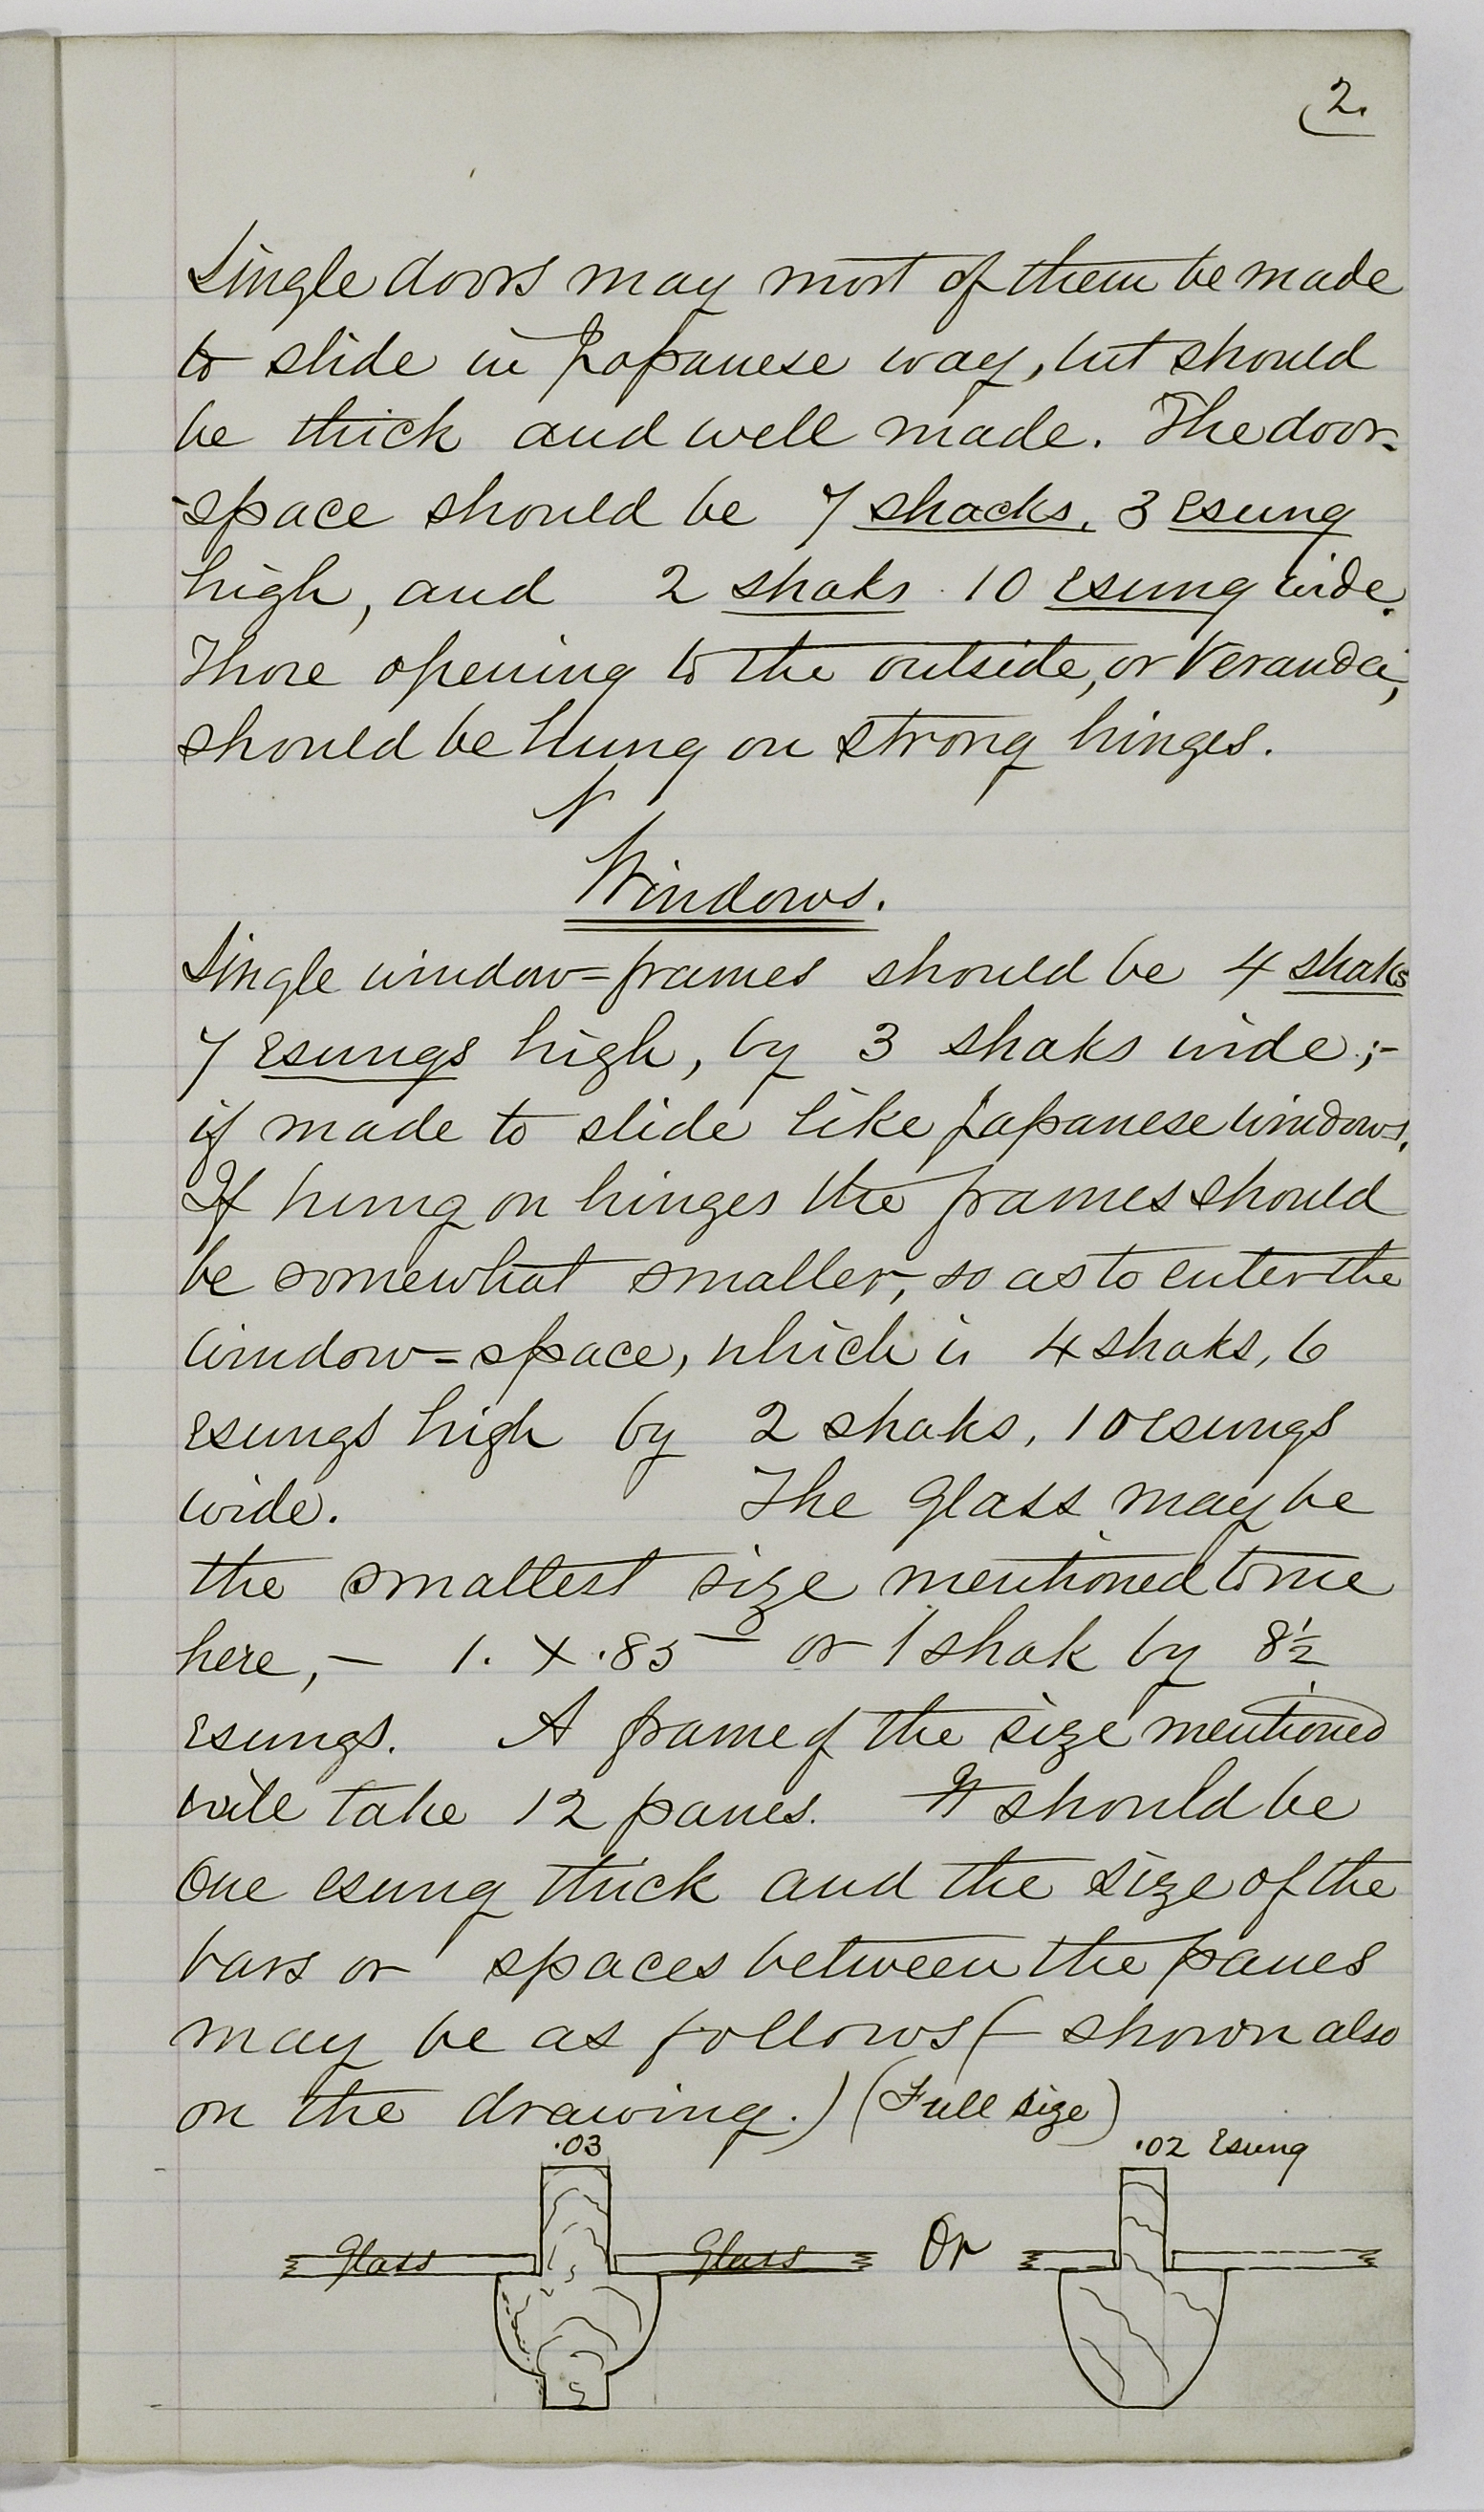 2.
Single doors may most of them be made
to slide in Japanese way, but should
be thick and well made. The door-
-space should be 7 shacks, 3 esung
high, and 2 shaks 10 esung wide.
Those opening to the outside, or Veranda,
should be hung on strong hinges.
Windows.
Single window=frames should be 4 shaks
7 esungs high, by 3 shaks wide;-
if made to slide like Japanese windows.
If hung on hinges the frames should
be somewhat smaller, so as to enter the
window=space, which is 4 shaks, 6
esungs high by 2 shaks, 10 esungs
wide. The glass may be
the smallest size mentioned to me
here,— 1. X .85— or 1 shak by 8½
esungs. A frame of the size mentioned
will take 12 panes. It should be
One esung thick and the size of the
bars or spaces between the panes
may be as follows (- shown also
on the drawing.) (Full size)
.03 .02 Esung
Glass Glass Or